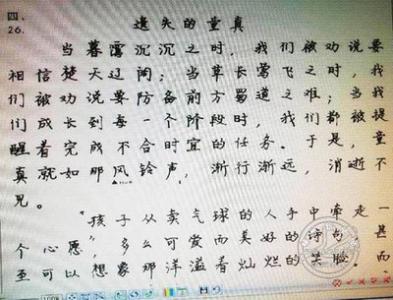 四、
26.
遗失的童真
当暮霭沉沉之时，我们被劝说要
相信楚天辽阔；当草长莺飞之时，我
们被劝说要防备前方蜀道之难；当我
们成长到每一个阶段时，我们都被提
醒着完成不合时宜的任务。于是，童
真就如那风铃声，渐行渐远，消逝不
见。
“孩子从卖气球的人手中牵走一
个心愿”，多么可爱而美好的诗句，甚而
至可以想象那洋溢着灿烂的笑脸。而
100%